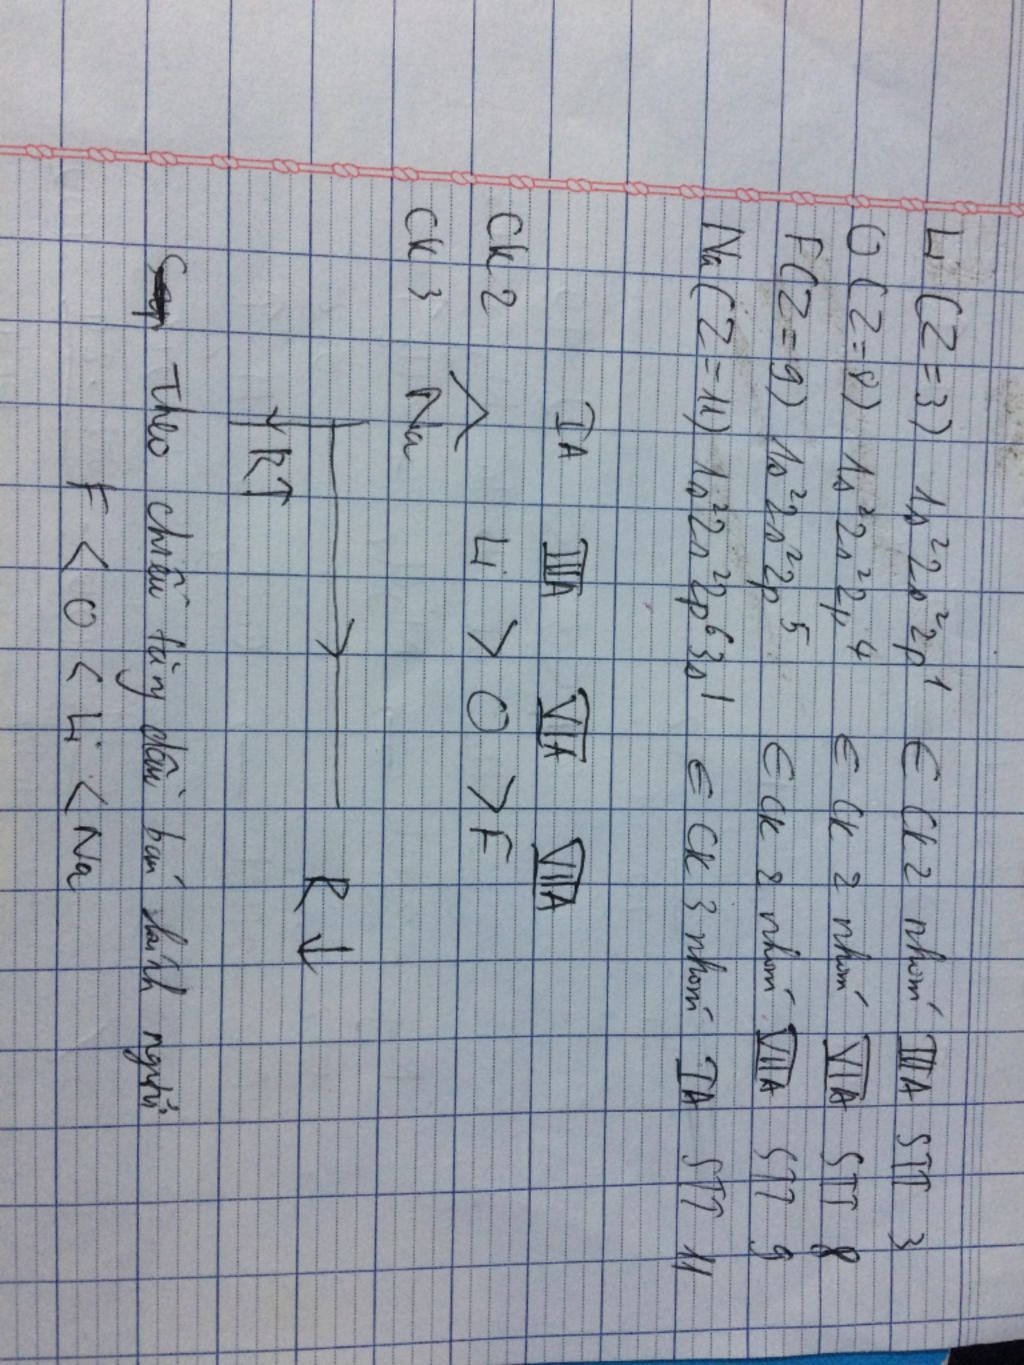 Li (Z=3) 1s²2s²2p¹ ∈ CK 2 nhóm IIIA STT 3
O (Z=8) 1s²2s²2p⁴ ∈ CK 2 nhóm VIA STT 8
F (Z=9) 1s²2s²2p⁵ ∈ CK 2 nhóm VIIA STT 9
Na (Z=11) 1s²2s²2p⁶3s¹ ∈ CK 3 nhóm IA STT 11
IA IIIA VIIA VIIIA
CK 2 Li > O > F
^
CK 3 Na
R↓
R↑
Theo chiều tăng dần bán kính ngtử
F < O < Li < Na